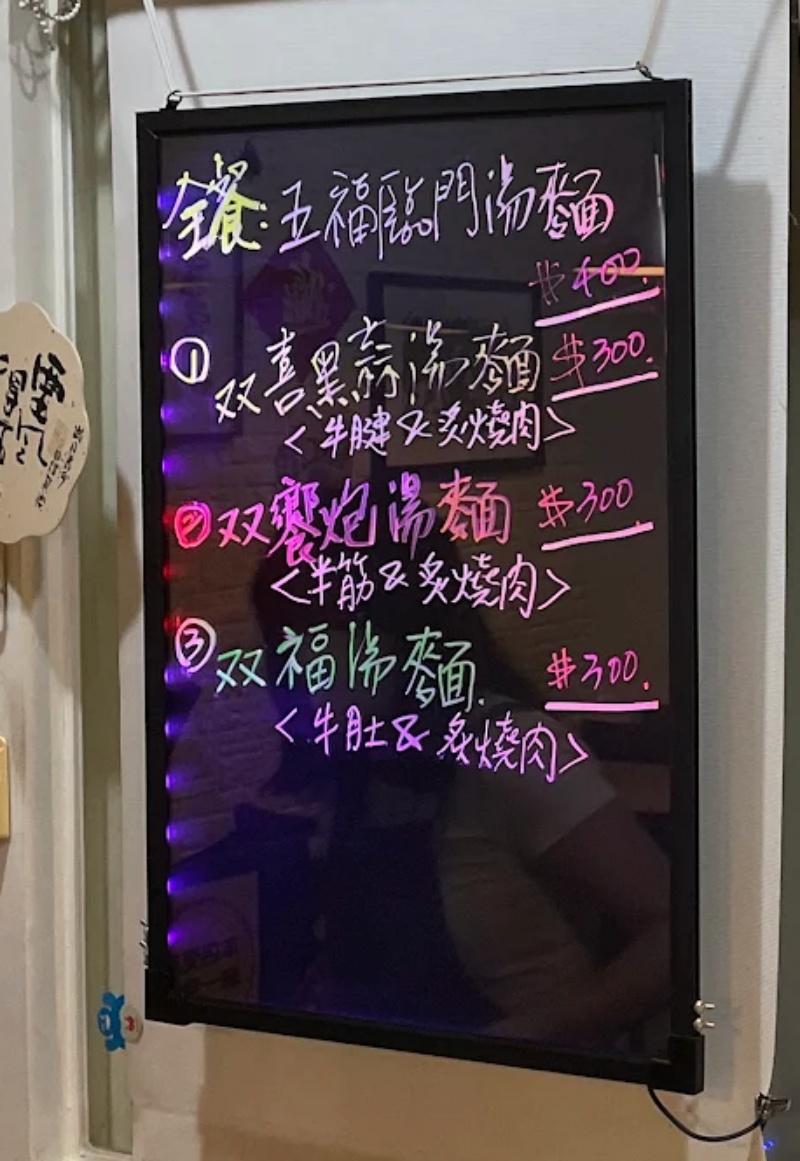 全餐: 五福臨門湯麵
$400.
① 双喜黑蒜湯麵 $300.
<牛腱 & 炙燒肉>
② 双饗炮湯麵 $300
<半筋 & 炙燒肉>
③ 双福湯麵. $300.
<牛肚 & 炙燒肉>